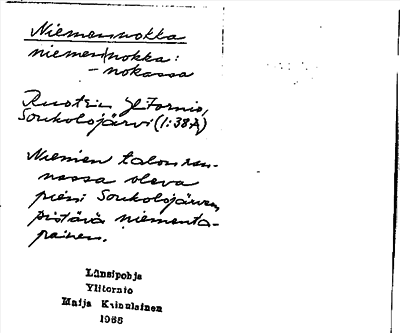 Niemennokka
niemen|nokka:
- nokassa
Ruotsin Ylitornio,
Soukolojärvi (1:38A)
Niemen talon ran-
nassa oleva
pieni Soukolojärveen
pistävä niementa-
painen.
Länsipohja
Ylitornio
Maija Kainulainen
1966